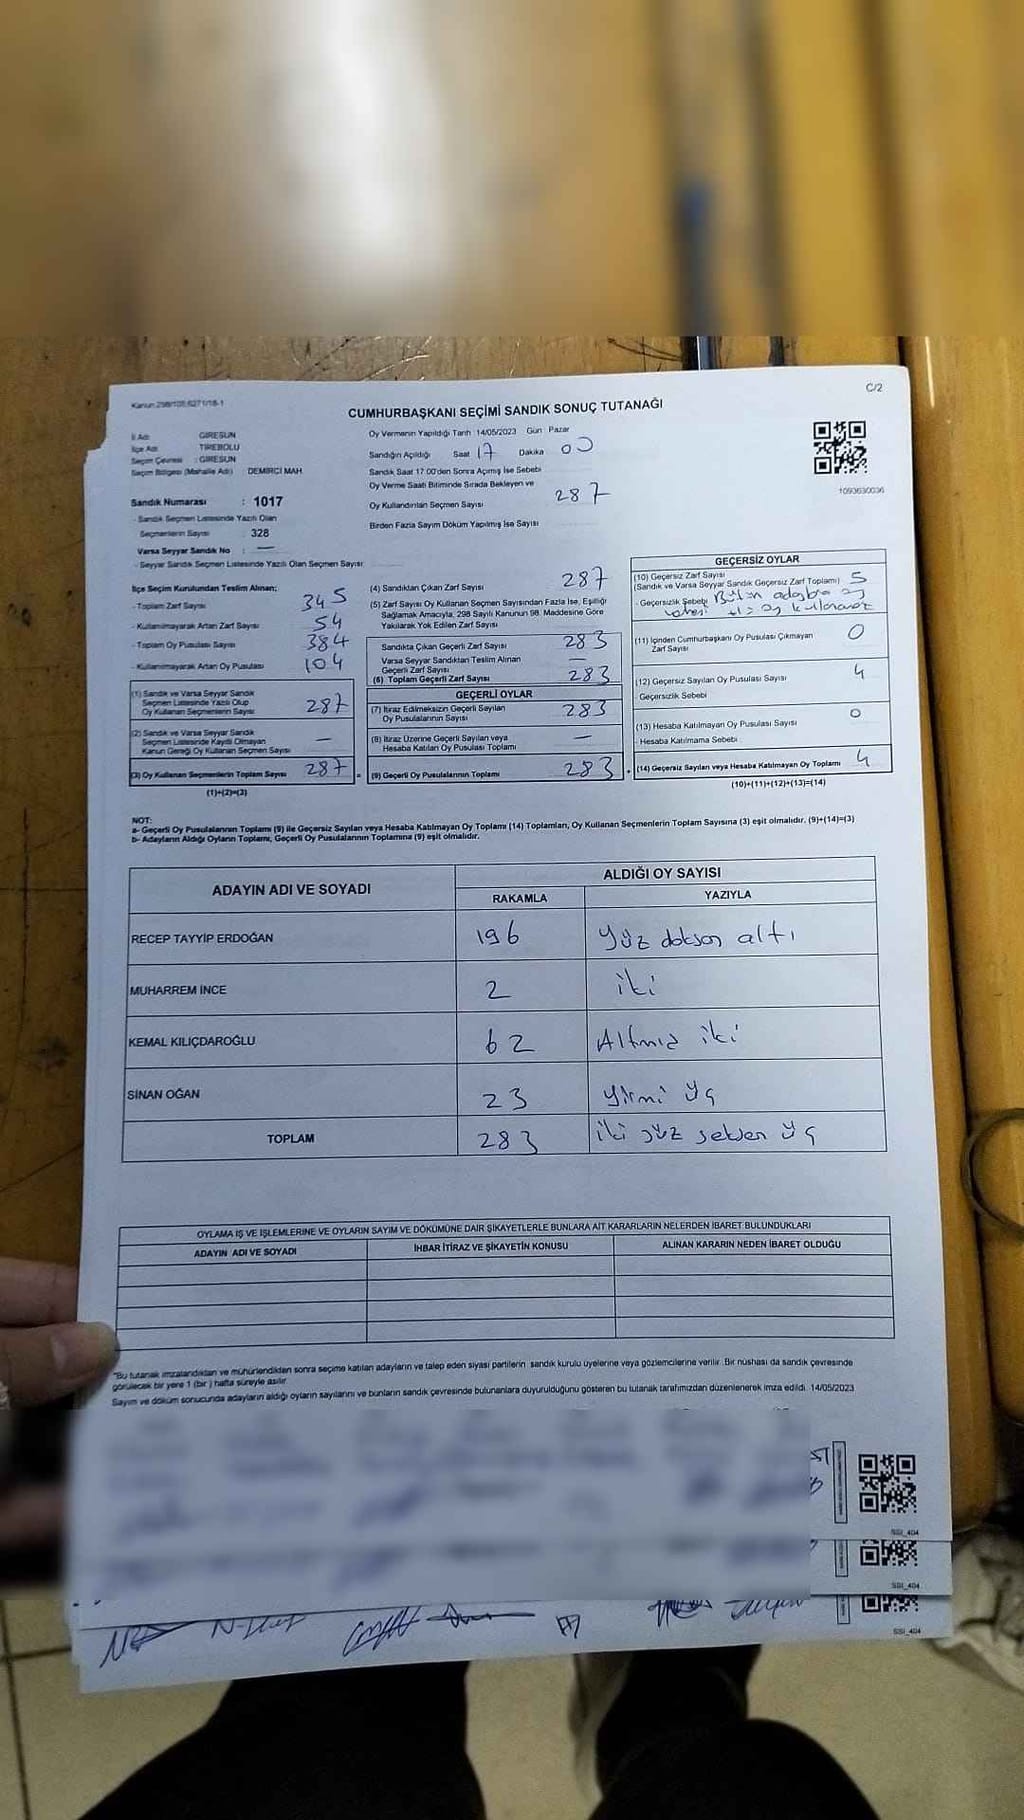 C/2
Kanun 298/105;6271/18-1
CUMHURBAŞKANI SEÇİMİ SANDIK SONUÇ TUTANAĞI
İl Adı GİRESUN
İlçe Adı TİREBOLU
Seçim Çevresi : GİRESUN
Seçim Bölgesi (Mahalle Adı) DEMİRCİ MAH.
Sandık Numarası : 1017
- Sandık Seçmen Listesinde Yazılı Olan
Seçmenlerin Sayısı : 328
Varsa Seyyar Sandık No : —
- Seyyar Sandık Seçmen Listesinde Yazılı Olan Seçmen Sayısı
Oy Vermenin Yapıldığı Tarih :14/05/2023 Gün : Pazar
Sandığın Açıldığı Saat 17 Dakika 00
Sandık Saat 17.00'den Sonra Açılmış İse Sebebi
Oy Verme Saati Bitiminde Sırada Bekleyen ve
Oy Kullandırılan Seçmen Sayısı 287
Birden Fazla Sayım Döküm Yapılmış İse Sayısı
1093630036
İlçe Seçim Kurulundan Teslim Alınan;
- Toplam Zarf Sayısı 345
- Kullanılmayarak Artan Zarf Sayısı 54
- Toplam Oy Pusulası Sayısı 384
- Kullanılmayarak Artan Oy Pusulası 104
(1) Sandık ve Varsa Seyyar Sandık
Seçmen Listesinde Yazılı Olup
Oy Kullanan Seçmenlerin Sayısı 287
(2) Sandık ve Varsa Seyyar Sandık
Seçmen Listesinde Kayıtlı Olmayan
Kanun Gereği Oy Kullanan Seçmen Sayısı —
(3) Oy Kullanan Seçmenlerin Toplam Sayısı 287
(1)+(2)=(3)
(4) Sandıktan Çıkan Zarf Sayısı 287
(5) Zarf Sayısı Oy Kullanan Seçmen Sayısından Fazla İse, Eşitliği
Sağlamak Amacıyla, 298 Sayılı Kanunun 98. Maddesine Göre
Yakılarak Yok Edilen Zarf Sayısı
Sandıkta Çıkan Geçerli Zarf Sayısı 283
Varsa Seyyar Sandıktan Teslim Alınan
Geçerli Zarf Sayısı —
(6) Toplam Geçerli Zarf Sayısı 283
GEÇERLİ OYLAR
(7) İtiraz Edilmeksizin Geçerli Sayılan
Oy Pusulalarının Sayısı 283
(8) İtiraz Üzerine Geçerli Sayılan veya
Hesaba Katılan Oy Pusulası Toplamı —
(9) Geçerli Oy Pusulalarının Toplamı 283
GEÇERSİZ OYLAR
(10) Geçersiz Zarf Sayısı
(Sandık ve Varsa Seyyar Sandık Geçersiz Zarf Toplamı) 5
- Geçersizlik Sebebi Bütün
(11) İçinden Cumhurbaşkanı Oy Pusulası Çıkmayan
Zarf Sayısı 0
(12) Geçersiz Sayılan Oy Pusulası Sayısı 4
Geçersizlik Sebebi
(13) Hesaba Katılmayan Oy Pusulası Sayısı 0
- Hesaba Katılmama Sebebi
(14) Geçersiz Sayılan veya Hesaba Katılmayan Oy Toplamı 4
(10)+(11)+(12)+(13)=(14)
NOT:
a- Geçerli Oy Pusulalarının Toplamı (9) ile Geçersiz Sayılan veya Hesaba Katılmayan Oy Toplamı (14) Toplamları, Oy Kullanan Seçmenlerin Toplam Sayısına (3) eşit olmalıdır. (9)+(14)=(3)
b- Adayların Aldığı Oyların Toplamı, Geçerli Oy Pusulalarının Toplamına (9) eşit olmalıdır.
ADAYIN ADI VE SOYADI ALDIĞI OY SAYISI
RAKAMLA YAZIYLA
RECEP TAYYİP ERDOĞAN 196 Yüz doksan altı
MUHARREM İNCE 2 iki
KEMAL KILIÇDAROĞLU 62 Altmış iki
SİNAN OĞAN 23 Yirmi üç
TOPLAM 283 iki yüz seksen üç
OYLAMA İŞ VE İŞLEMLERİNE VE OYLARIN SAYIM VE DÖKÜMÜNE DAİR ŞİKAYETLERLE BUNLARA AİT KARARLARIN NELERDEN İBARET BULUNDUKLARI
ADAYIN ADI VE SOYADI İHBAR İTİRAZ VE ŞİKAYETİN KONUSU ALINAN KARARIN NEDEN İBARET OLDUĞU
"Bu tutanak imzalandıktan ve mühürlendikten sonra seçime katılan adayların ve talep eden siyasi partilerin sandık kurulu üyelerine veya gözlemcilerine verilir. Bir nüshası da sandık çevresinde
görülecek bir yere 1 (bir) hafta süreyle asılır
Sayım ve döküm sonucunda adayların aldığı oyların sayılarını ve bunların sandık çevresinde bulunanlara duyurulduğunu gösteren bu tutanak tarafımızdan düzenlenerek imza edildi. 14/05/2023
SSI_404
SSI_404
SSI_404